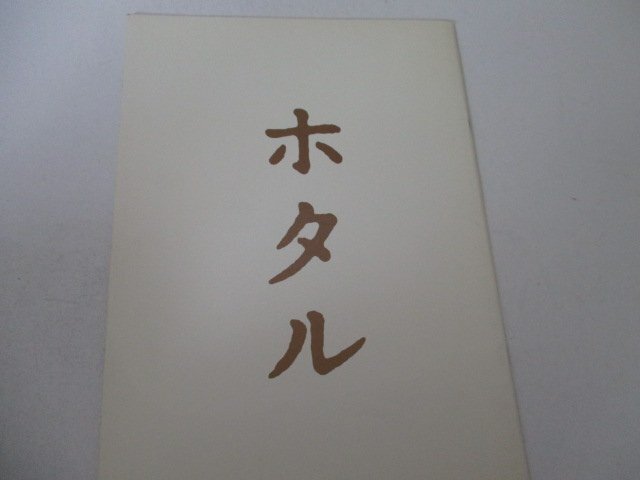 ホタル